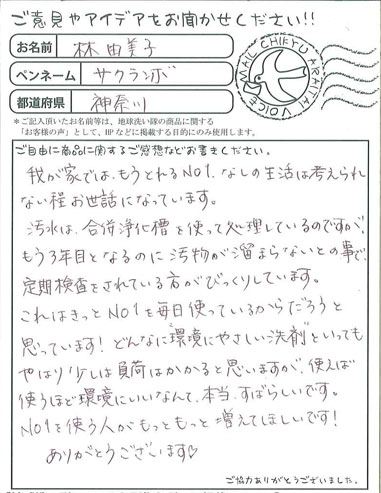 ご意見やアイデアをお聞かせください!!
お名前 林 由美子
ペンネーム サクランボ
都道府県 神奈川
MAIL CHIKYU ARAITAI VOICE
＊ご記入頂いたお名前等は、地球洗い隊の商品に関する
「お客様の声」として、HPなどに掲載する目的にのみ使用します。
ご自由に商品に関するご感想などお書きください。
我が家では、もうとれるNO1.なしの生活は考えられ
ない程お世話になっています。
汚水は、合併浄化槽を使って処理しているのですが、
もう3年目となるのに汚物が溜まらないとの事で、
定期検査をされている方がびっくりしています。
これはきっとNO1を毎日使っているからだろうと
思っています! どんなに"環境にやさしい洗剤"といっても
やはり少しは負荷はかかると思いますが、使えば
使うほど環境にいいなんて、本当、すばらしいです。
NO1を使う人がもっともっと増えてほしいです!
ありがとうございます♡
ご協力ありがとうございました。